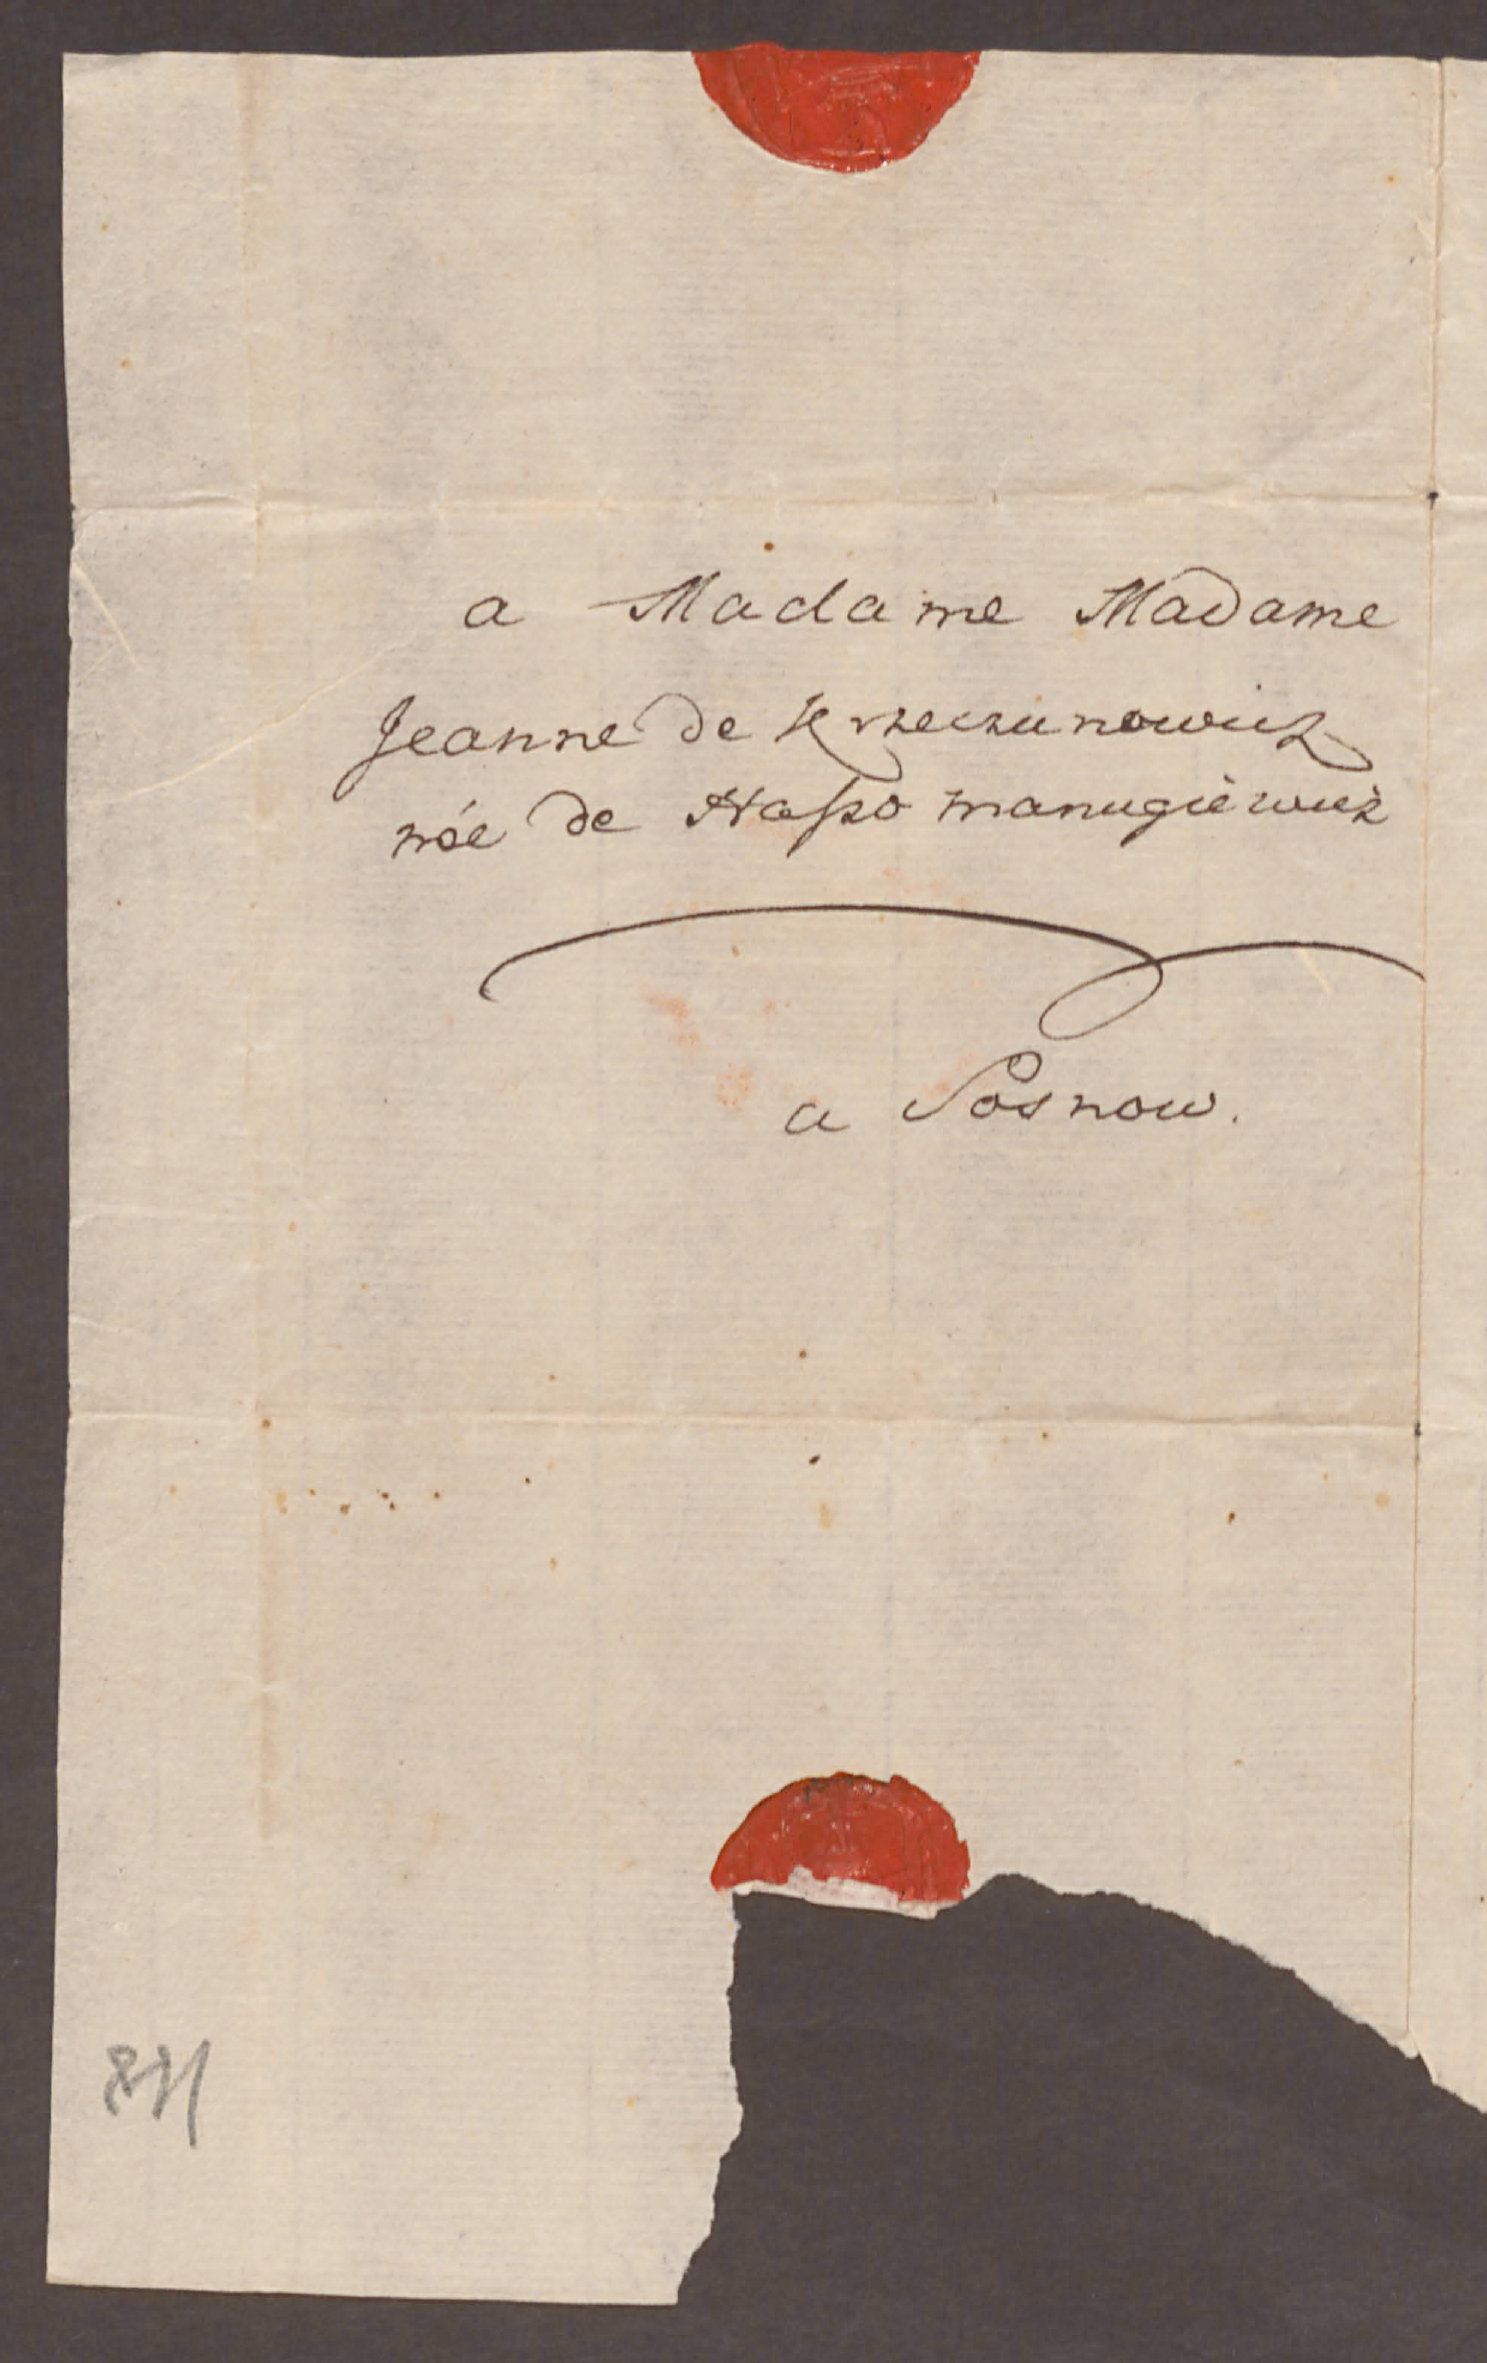 a Madame Madame
Jeanne de Krzeczunowicz
née de Hasso manugiewicz
a Sosnow.